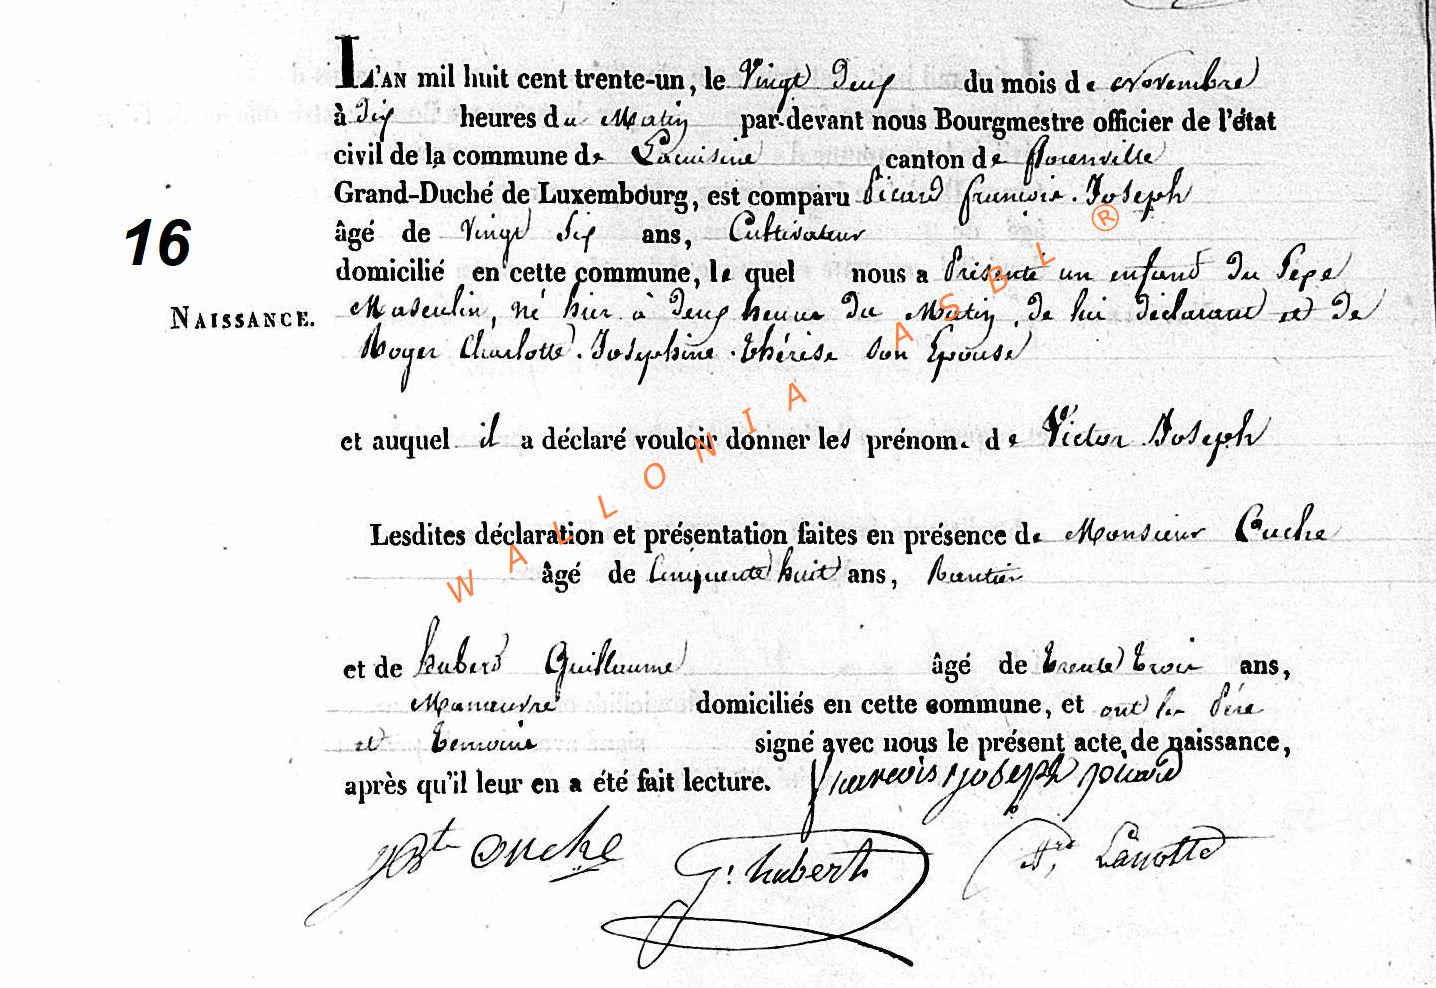 L'AN mil huit cent trente-un, le Vingt Deux du mois de Novembre
à Dix heures du Matin par-devant nous Bourgmestre officier de l'état
civil de la commune de Lacuisine canton de florenville
Grand-Duché de Luxembourg, est comparu Picard francois Joseph
âgé de Vingt Six ans, Cultivateur
domicilié en cette commune, le quel nous a Présenté un enfant Du Sexe
16
NAISSANCE.
Masculin, né hier à Deux heures Du Matin, De lui déclarant et De
Roger Charlotte Josephine Thérèse Son Epouse
et auquel il a déclaré vouloir donner les prénom. de Victor Joseph
Lesdites déclaration et présentation faites en présence de Monsieur Cuche
âgé de Cinquante huit ans, Rentier
et de hubert Guillaume âgé de trente trois ans,
Manœuvre domiciliés en cette commune, et ont les Père
et temoins signé avec nous le présent acte de naissance,
après qu'il leur en a été fait lecture. francois joseph picard
JBte Cuche G. hubert Lanotte
WALLONIA ASBL ®